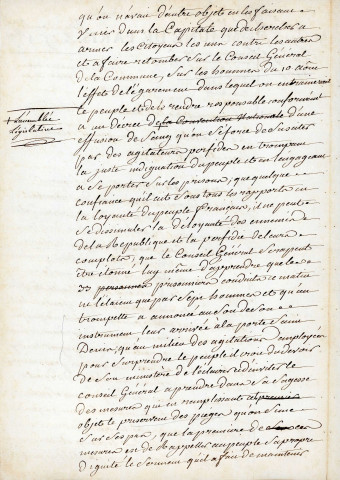 qu'on n'avait d'autre objet en les faisant
venir dans la Capitale que de chercher a
armer les citoyens les uns contre les autres
et a faire retomber sur le Conseil Général
de la Commune, sur les hommes du 10 août
l'effet de l'égarement dans lequel on entrainerait
le peuple et de le rendre responsable conformément
+ L'assemblée
Législative
a un décret de la Convention Nationale d'une
effusion de sang qu'on s'efforce de susciter
par des agitateurs perfides en trompant
la juste indignation du peuple et en l'engageant
a se porter sur les prisons, que quelque
confiance qu'il eut sous tous les rapports en
la loyauté du peuple français, il ne peut
se dissimuler la déloyauté des ennemis
de la République et la perfidie de leurs
complots, que le Conseil Général sera peut
être étonné lui même d'apprendre que les
33 personnes prisonniers conduits ce matin
n'étaient que par sept hommes et qu'un
trompette a annoncé au son de son
instrument leur arrivée a la porte Saint
Denis, qu'au milieu des agitations employées
pour surprendre le peuple il croit du devoir
de son ministère de l'éclairer et d'inviter le
conseil Général a prendre dans sa sagesse
des mesures qui en remplissant
objet le préservent des pièges qu'on sème
sur ses pas, que la première de
mesures est de rappeller au peuple sa propre
dignité le serment qu'il a fait de maintenir